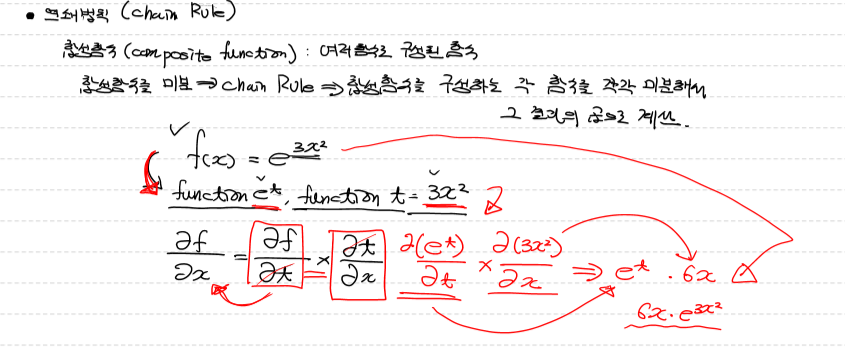 • 연쇄법칙 (chain Rule)
합성함수 (composite function) : 여러 함수로 구성된 함수
합성함수를 미분 ⇒ chain Rule ⇒ 합성함수를 구성하는 각 함수를 각각 미분해서
그 결과의 곱으로 계산.
✓ f(x) = e^{3x²}
function e^t, function t = 3x²
∂f/∂x = ∂f/∂t × ∂t/∂x ∂(e^t)/∂t × ∂(3x²)/∂x ⇒ e^t · 6x
6x · e^{3x²}